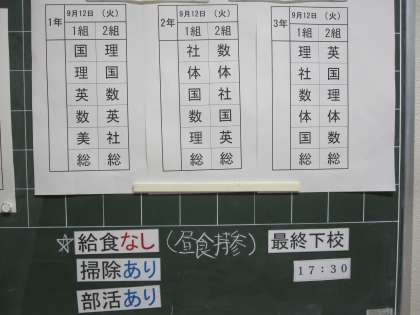 1年 9月12日 (火)
1組 2組
国 理
理 国
英 数
数 英
美 社
総 総
2年 9月12日 (火)
1組 2組
社 数
体 体
国 社
数 国
理 英
総 総
3年 9月12日 (火)
1組 2組
理 英
社 国
英 理
数 数
体 体
国 数
総 総
☆給食なし (昼食持参) 最終下校
掃除あり 17:30
部活あり